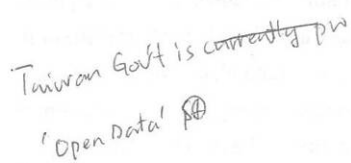 Taiwan Gov't is currently pw
'Open Data'